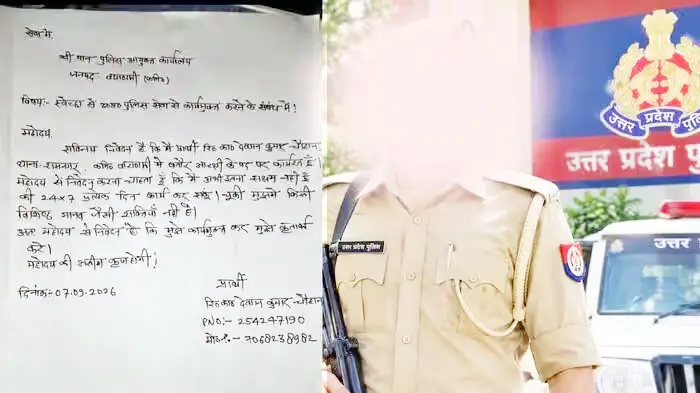 सेवा में,
श्री मान पुलिस आयुक्त कार्यालय
जनपद- वाराणसी (कमि०)
विषय:- स्वेच्छा से उ०प्र० पुलिस सेवा से कार्यमुक्त करने के संबंध में!
महोदय,
सविनय निवेदन है कि मैं प्रार्थी रि० का० देवेन्द्र कुमार चौहान,
थाना- रामनगर, कमि० वाराणसी में बतौर आरक्षी के पद पर कार्यरत हूँ।
महोदय से निवेदन करना चाहता हूँ कि मैं अभी इतना सक्षम नहीं हूँ
की 24x7 प्रत्येक दिन कार्य कर सकूं। चूकी मुझमे किसी
विशिष्ट मानव जैसी शक्तियाँ नहीं है।
अतः महोदय से निवेदन है कि मुझे कार्यमुक्त कर मुझे कृतार्थ
करे।
महोदय की असीम कृपा होगी!
प्रार्थी
दिनांक:- 07.09.2026
रि० का० कुमार चौहान
PNO:- 254247190
मो०नं०:- 7068238982
उत्तर प्रदेश पुलिस
उत्तर प्रदेश पुलिस
उत्तर प्रदेश पु
उत्तर